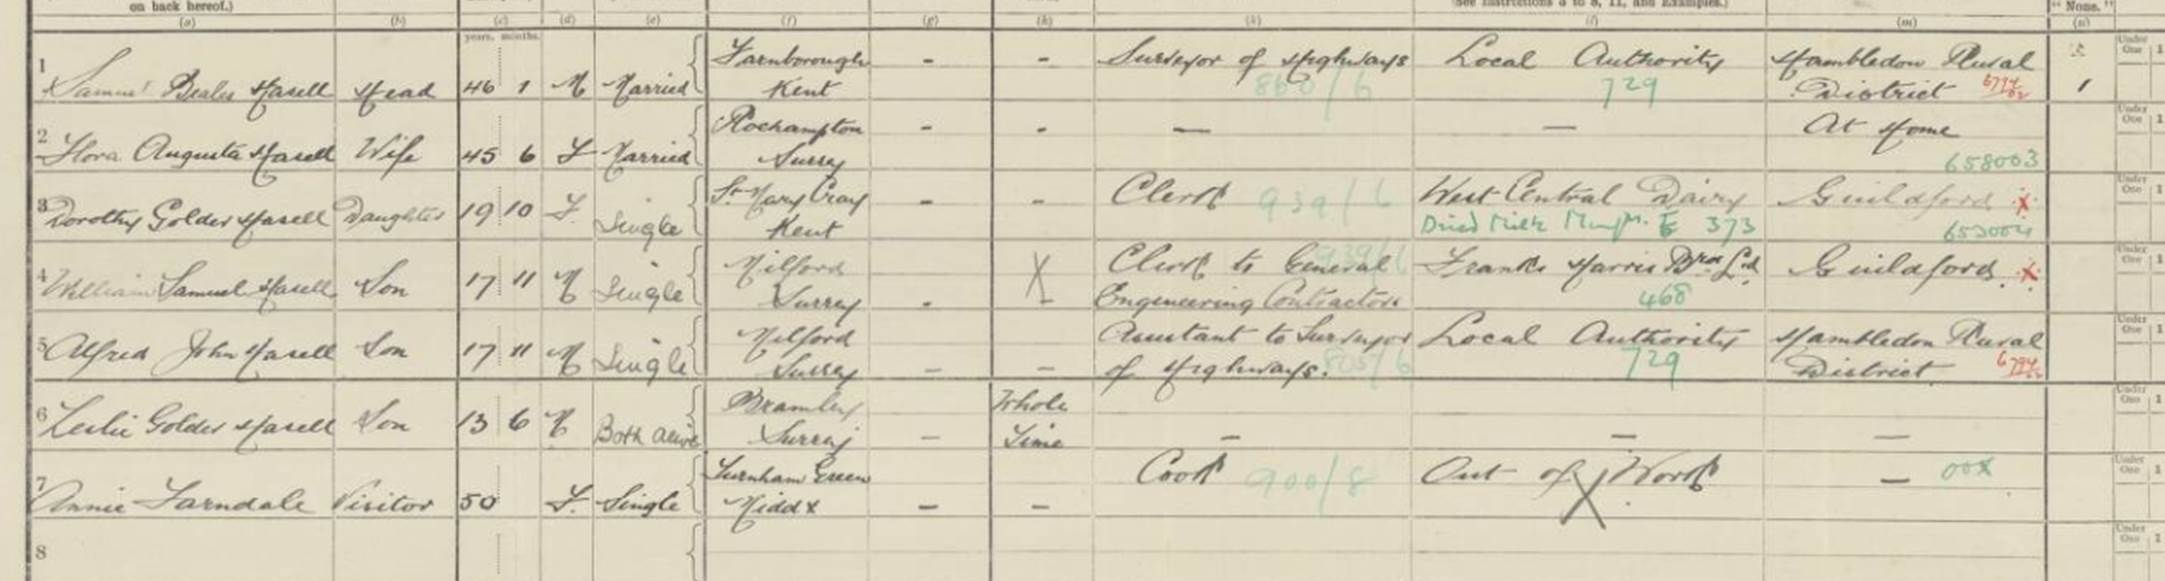 on back hereof.)
See Instructions 5 to 8, 11, and Examples.)
"None."
(a) (b) (c) (d) (e) (f) (g) (h) (k) (l) (m) (n)
years. months.
1 Samuel Beales Hasell Head 46 1 M Married Farnborough Kent - - Surveyor of Highways 860/6 Local Authority 729 Hambledon Rural District 1
2 Flora Augusta Hasell Wife 45 6 F Married Roehampton Surrey - - — — At Home 658003
3 Dorothy Golder Hasell Daughter 19 10 F. Single St. Mary Cray Kent - - Clerk 939/6 West Central Dairy Dried Milk E 373 Guildford x 653004
4 William Samuel Hasell Son 17 11 M Single Milford Surrey - X Clerk to General Engineering Contractors 939/6 Franks Harris Bros Ltd. 468 Guildford. x
5 Alfred John Hasell Son 17 11 M Single Milford Surrey - - Assistant to Surveyor of Highways. Local Authority 729 Hambledon Rural District
6 Leslie Golder Hasell Son 13 6 M Both alive Bramley Surrey - Whole Time - - -
7 Annie Farndale Visitor 50 F. Single Turnham Green Middx - - Cook 900/8 Out of Work - 00x
8
Under One 1
Under One 1
Under One 1
Under One 1
Under One 1
Under One 1
Under One 1
Under One 1